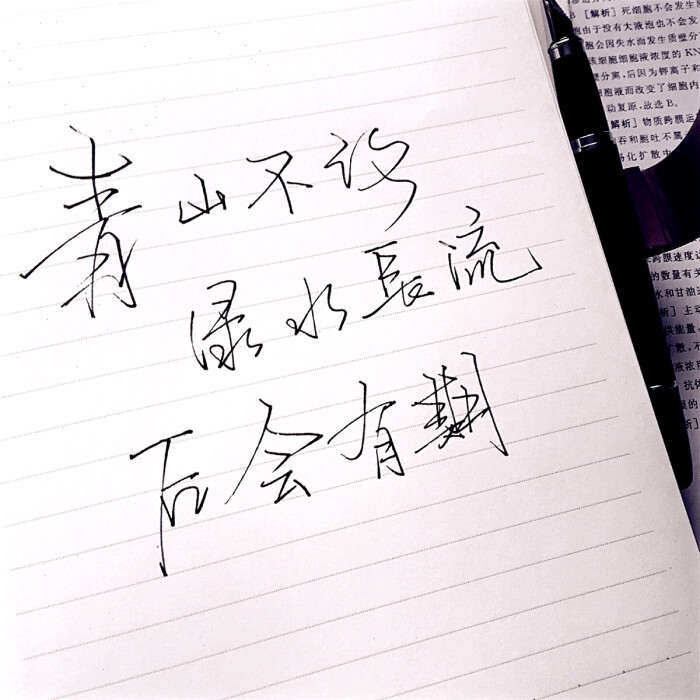 青山不
渌水長流
后会有期
[解析] 死细胞不会发生
胞由于没有大液泡也不会发
胞会因失水而发生质壁分
该细胞细胞液浓度的 KN
壁分离,后因为钾离子和
胞液而改变了细胞内
动复原,故选 B。
解析] 物质跨膜运
吞和胞吐不属
易化扩散中
跨膜速度
的数量有关
水和甘油
析] 主动
供能量,
散,不
液浓
抗体
膜的
析]